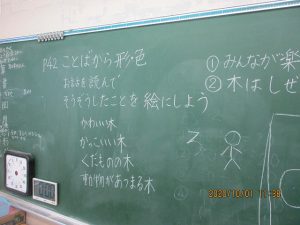 P42 ことばから形・色
お話を読んで
そうぞうしたことを絵にしよう
かわいい木
かっこいい木
くだものの木
動物があつまる木
① みんなが楽
② 木はしぜ
2020/10/01 11:38